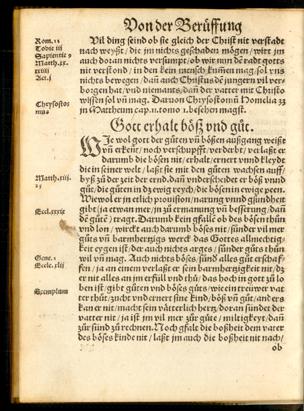 Von der Berüffung
Rom. 12
Tobie iii
Sapientie 9
Matth. 24.
Act. j
Vil ding seind ob sie gleich der Christ nit verstadt
nach weyßt / die jm nichts geschaden mögen / wirt jm
auch doran nichts versumpt / ob wir nun de radt gotts
nit verstond / in den kein mensch kumen mag / sol vns
nichts bewegen / dañ auch Christus dē jungern vil ver-
borgen hat / vnd niemants / dañ der vatter mit Christo
Chrysostomus
wissen sol vñ mag. Daruon Chrysostomū Homelia 33
jn Mattheum cap. 10. tomo 2. besehen magst.
Gott erhalt böß vnd güt.
Wie wol gott der gütē vñ bösen außgang weißt
vñ erkent / noch verschupfft / verderbt / verlaßt er
darumb die bösen nit / erhalt / ernert vnnd kleydt
die in seiner welt / laßt sie mit den güten wachsen auff
Matth. xiii.
byß zü der zeit der ernd dañ vnderscheidet er böß vnnd
güt / die güten in dz ewig reych / die bösen in ewige peen.
Wiewol er jn erlich prouision / narung vnnd gsundheit
Eccl. xxxix
gibt / ja etwan mer / jn zu ermanung vñ besserung / dañ
dē gütē / tragt. Darumb kein gfallē ob des bösen thün
vnd lon / wirckt auch darumb böses nit / sünder vil mer
güts vñ barmhertzigs werck das Gottes allmechtig-
keit eygen ist der auch nichts args / sünder güts thün
wil vñ mag. Auch nichts böses / sünd alles güt erschaf-
Gene. 1
Eccle. xlij
fen / ja an einem verlast er sein barmhertzigkeit nit / dz
er nit alles an jm erfüll vnd thü / das hoch in gott zü lo-
ben ist / gibt güten vnd böses güts / wie ein treüwer vat-
Exemplum
ter thüt / zucht vnd ernert sine kind / böß vñ güt / anders
kan er nit / macht sein vätterlich hertz / doran sünder der
vatter nit / ja ist jm vil mer zür güte / miltigkeyt / dañ
zür sünd zü rechnen. Noch gfalt die boßheit dem vater
des böses kinde nit / laßt jm auch die boßheit nit nach /
ob